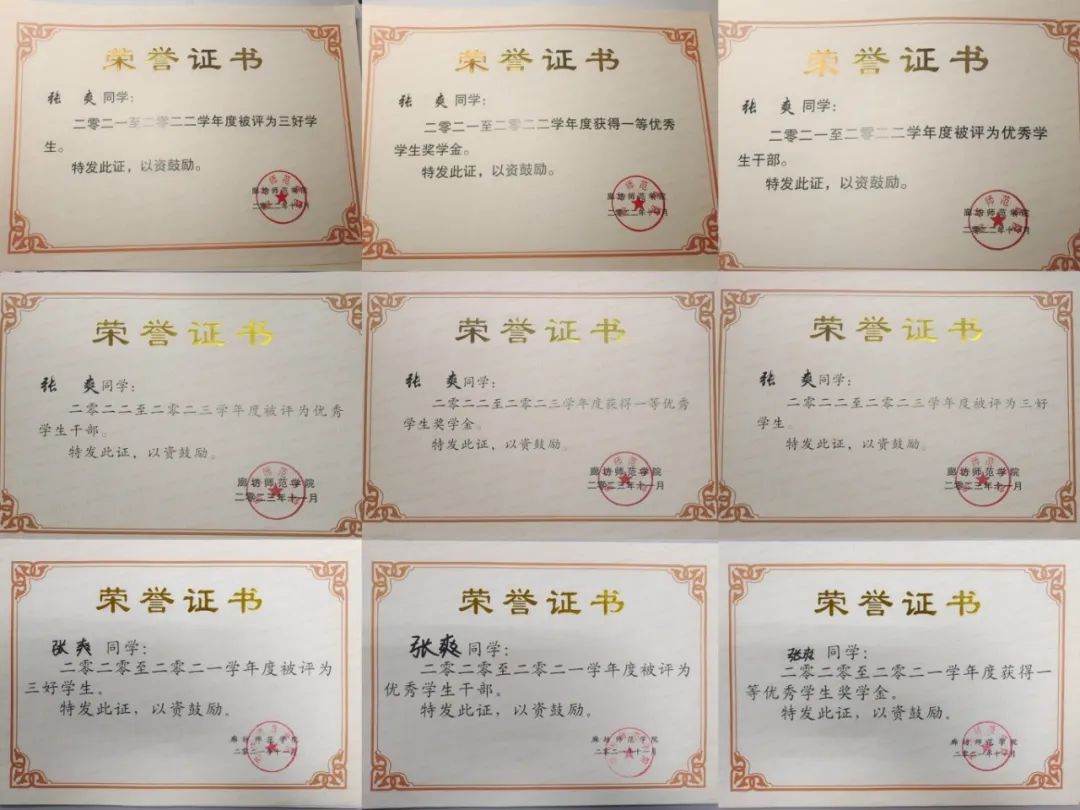 荣誉证书
张 爽 同学：
二零二一至二零二二学年度被评为三好学
生。
特发此证，以资鼓励。
廊坊师范学院
二零二二年十一月
荣誉证书
张 爽 同学：
二零二一至二零二二学年度获得一等优秀
学生奖学金。
特发此证，以资鼓励。
廊坊师范学院
二零二二年十一月
荣誉证书
张 爽 同学：
二零二一至二零二二学年度被评为优秀学
生干部。
特发此证，以资鼓励。
廊坊师范学院
二零二二年十一月
荣誉证书
张 爽同学：
二零二二至二零二三学年度被评为优秀
学生干部。
特发此证，以资鼓励。
廊坊师范学院
二零二三年十一月
荣誉证书
张 爽同学：
二零二二至二零二三学年度获得一等优秀
学生奖学金。
特发此证，以资鼓励。
廊坊师范学院
二零二三年十一月
荣誉证书
张 爽同学：
二零二二至二零二三学年度被评为三好
学生。
特发此证，以资鼓励。
廊坊师范学院
二零二三年十一月
荣誉证书
张爽 同学：
二零二零至二零二一学年度被评为
三好学生。
特发此证，以资鼓励。
廊坊师范学院
二零二一年十二月
荣誉证书
张爽 同学：
二零二零至二零二一学年度被评为
优秀学生干部。
特发此证，以资鼓励。
廊坊师范学院
二零二一年十二月
荣誉证书
张爽 同学：
二零二零至二零二一学年度获得一
等优秀学生奖学金。
特发此证，以资鼓励。
廊坊师范学院
二零二一年十二月